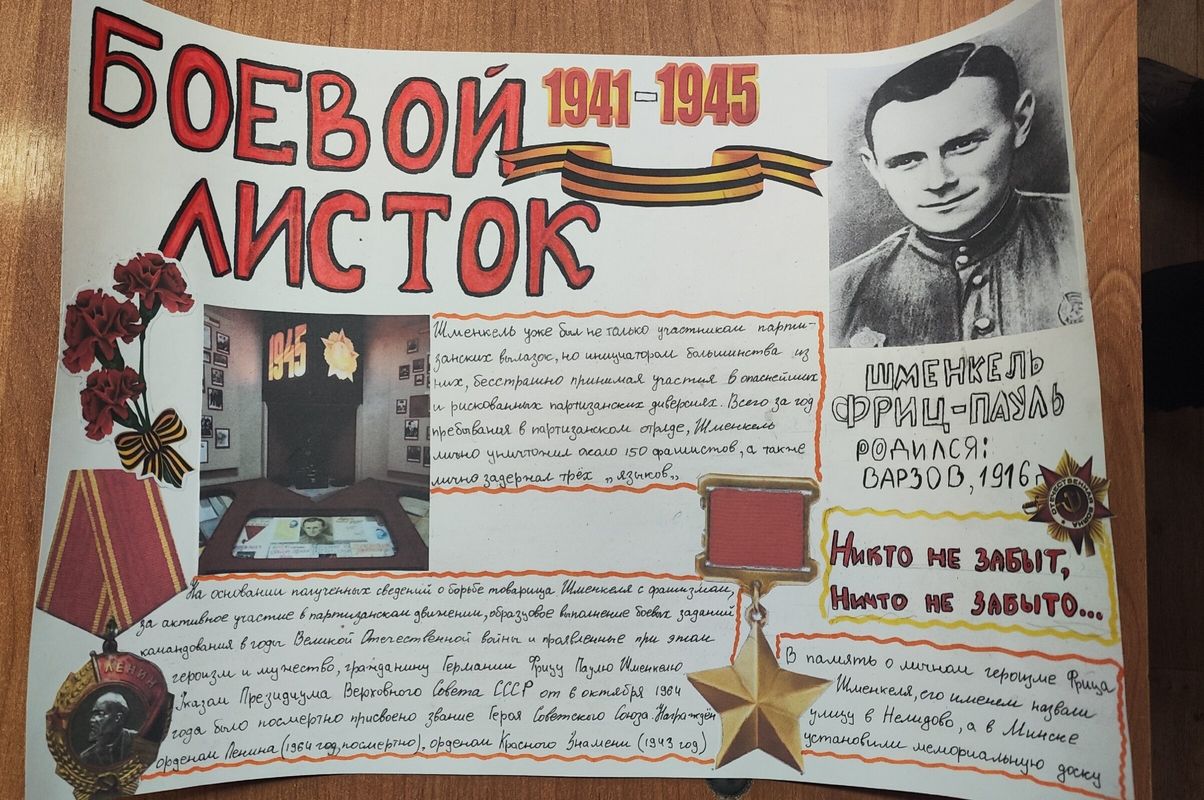 БОЕВОЙ
ЛИСТОК
1941-1945
1945
Шменкель уже был не только участником парти-
занских вылазок, но инициатором большинства из
них, бесстрашно принимая участия в опаснейших
и рискованных партизанских диверсиях. Всего за год
пребывания в партизанском отряде, Шменкель
лично уничтожил около 150 фашистов, а также
лично задержал трёх „языков„
ШМЕНКЕЛЬ
ФРИЦ-ПАУЛЬ
РОДИЛСЯ:
ВАРЗОВ, 1916 г
ОТЕЧЕСТВЕННАЯ ВОЙНА
НИКТО НЕ ЗАБЫТ,
НИЧТО НЕ ЗАБЫТО...
На основании полученных сведений о борьбе товарища Шменкеля с фашизмом,
за активное участие в партизанском движении, образцовое выполнение боевых заданий
командования в годы Великой Отечественной войны и проявленные при этом
героизм и мужество, гражданину Германии Фрицу Паулю Шменкелю
Указом Президиума Верховного Совета СССР от 6 октября 1964
года было посмертно присвоено звание Героя Советского Союза. Награждён
орденом Ленина (1964 год, посмертно), орденом Красного Знамени (1943 год)
ЛЕНИН
В память о личном героизме Фрица
Шменкеля, его именем назвали
улицу в Нелидово, а в Минске
установили мемориальную доску